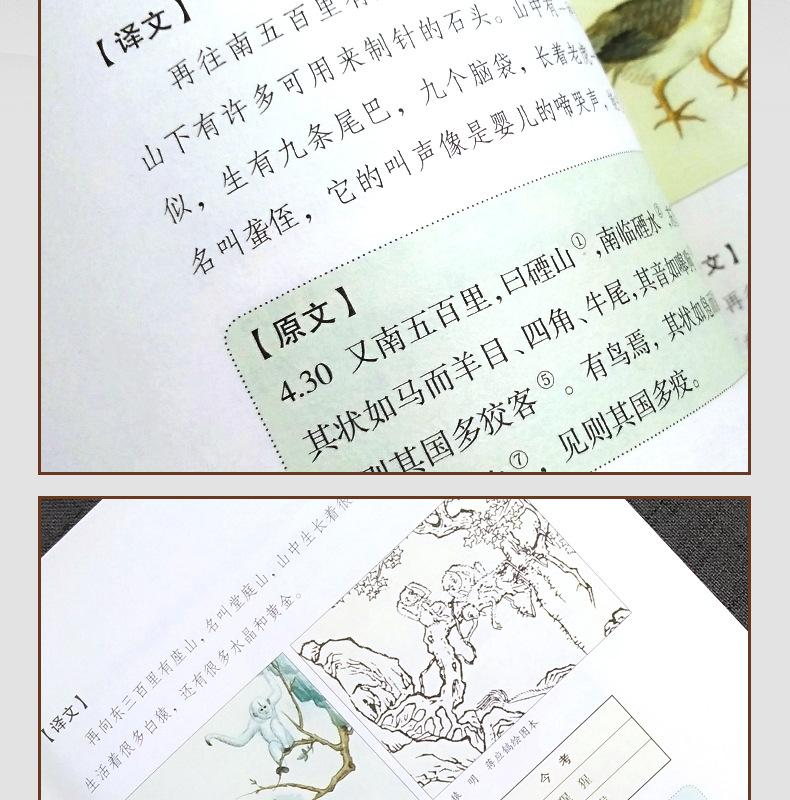 【译文】
再往南五百里有
山下有许多可用来制针的石头。山中有一
似，生有九条尾巴，九个脑袋，长着老虎
名叫蠪侄，它的叫声像是婴儿的啼哭声，
【原文】
4.30 又南五百里，曰䃌山①，南临䃌水②，
其状如马而羊目、四角、牛尾，其音如嗥
则其国多狡客⑤。有鸟焉，其状如凫
⑦，见则其国多疫。
文】
再
【译文】
再向东三百里有座山，名叫堂庭山，山中生长着很
生活着很多白猿，还有很多水晶和黄金。
明 蒋应镐绘图本
今考
猩猩